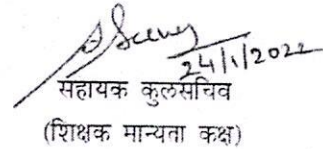 24/1/2022
सहायक कुलसचिव
(शिक्षक मान्यता कक्ष)